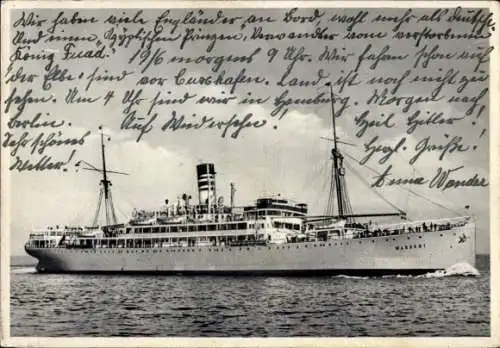 Wir haben viele Engländer an Bord, wohl mehr als deutsche
und einen Ägyptischen Prinzen, Verwandter vom verstorbenen
König Fuad. 19/6 morgens 9 Uhr. Wir fahren schon auf
der Elbe sind vor Cuxhafen. Land ist noch nicht zu
sehen. Um 4 Uhr sind wir in Hamburg. Morgen nach
Berlin. Auf Wiedersehn! Heil Hitler!
Sehr schönes Wetter! Herzl. Grüße!
Anna Wander
WADUKU